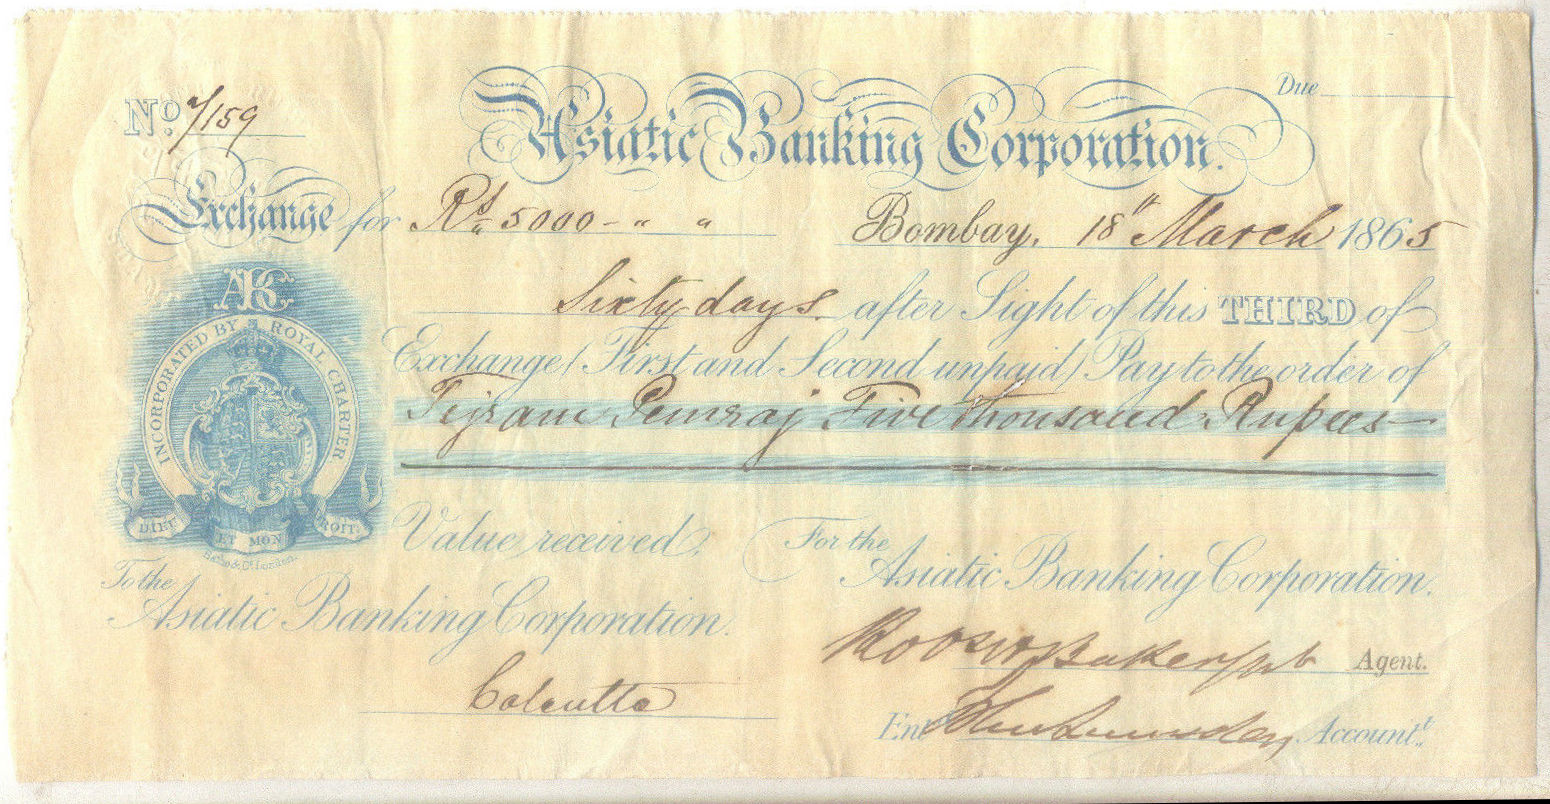 Due
No. 7/159
Asiatic Banking Corporation.
Exchange for Rs. 5000 - " " Bombay, 18th March 1865
ABC
INCORPORATED BY ROYAL CHARTER
DIEU ET MON DROIT.
Sixty days after Sight of this THIRD of
Exchange (First and Second unpaid) Pay to the order of
Tejram Pemraj Five thousand Rupees
Value received.
For the
Asiatic Banking Corporation.
To the
Asiatic Banking Corporation.
Agent.
Calcutta
Entd Accountt.